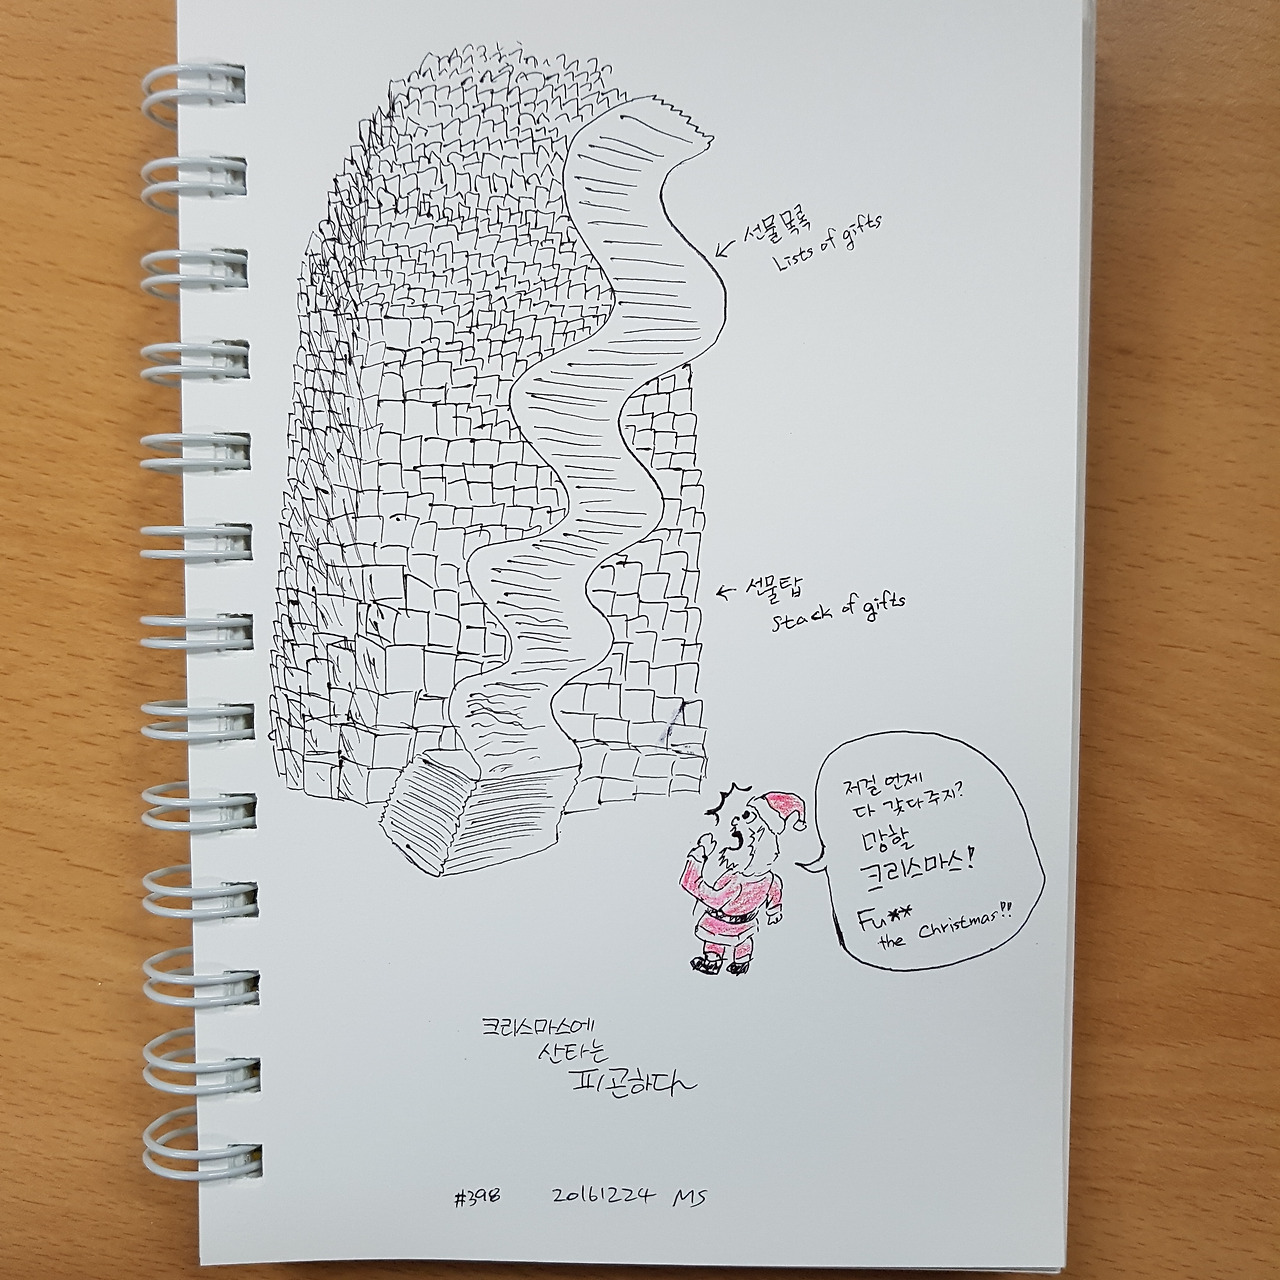 ← 선물목록
Lists of gifts
← 선물탑
Stack of gifts
저걸 언제
다 갖다주지?
망할
크리스마스!
Fu**
the Christmas!!
크리스마스에
산타는
피곤하다~
#398 20161224 MS